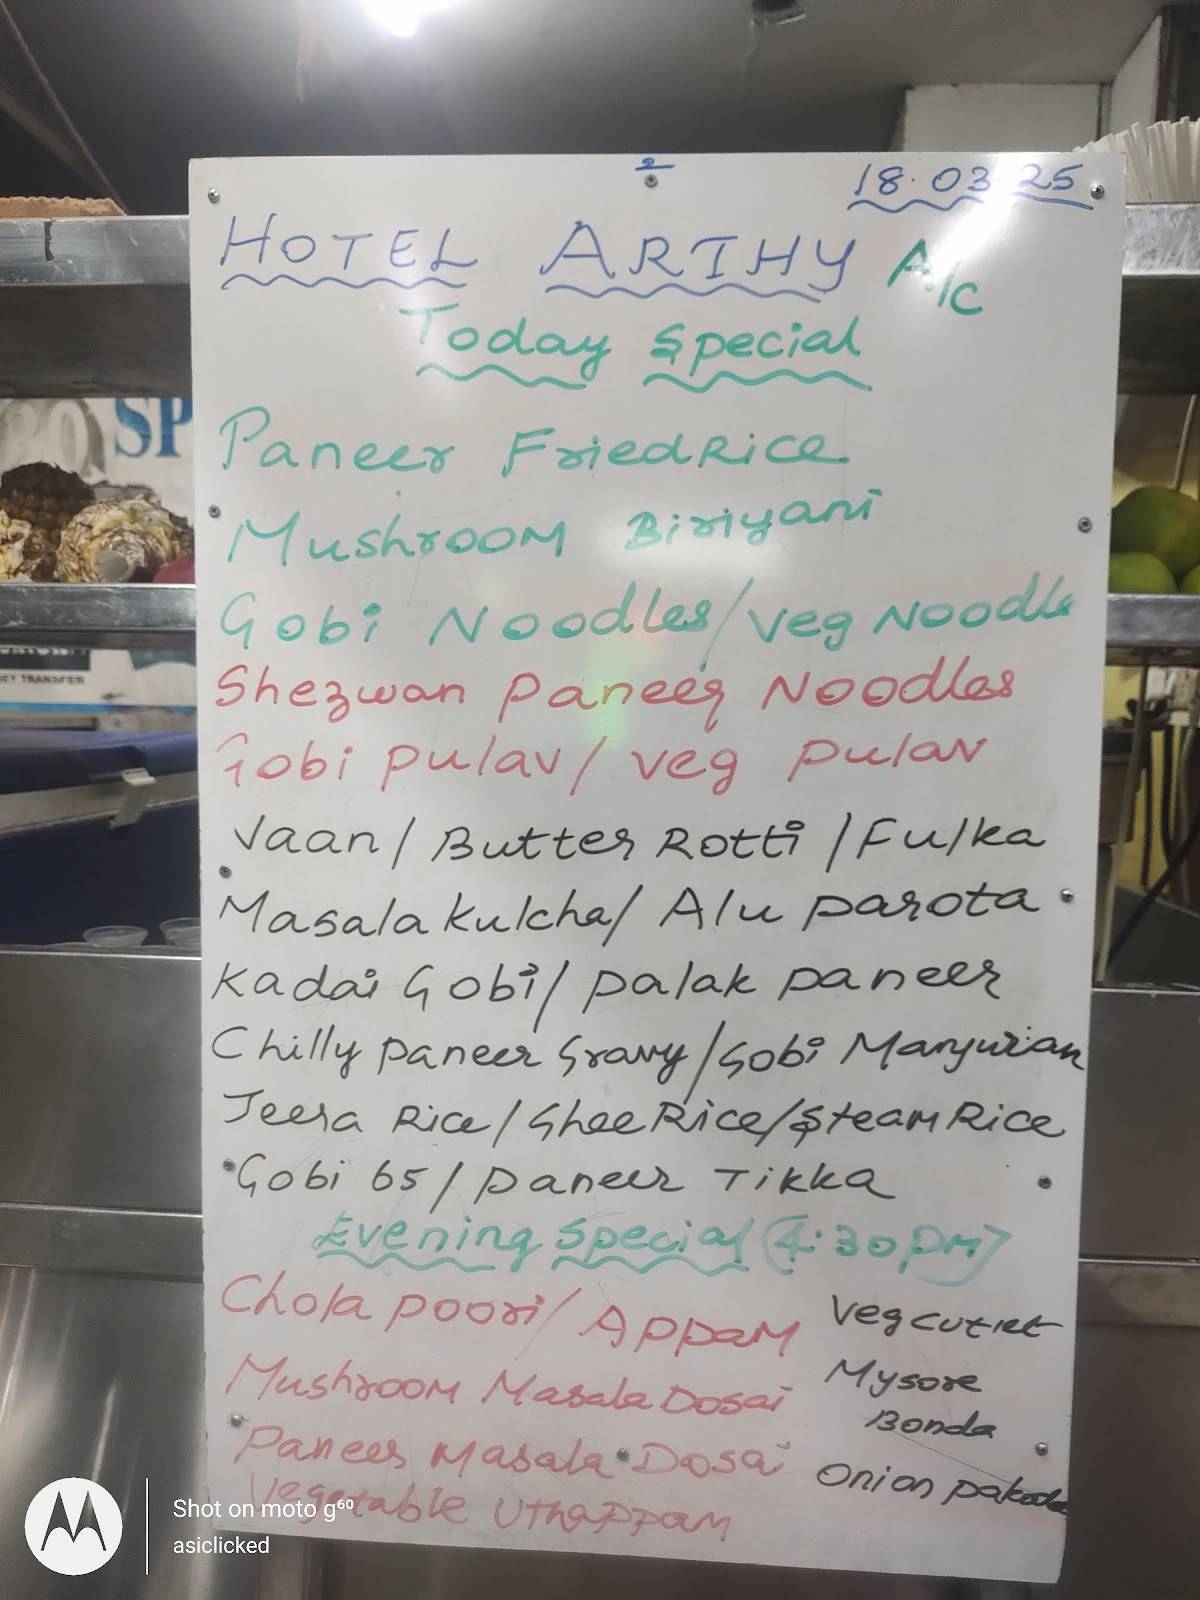 2
18.03.25
HOTEL ARTHY A/C
Today Special
Paneer FriedRice
Mushroom Biriyani
Gobi Noodles/Veg Noodle
Shezwan Paneer Noodles
Gobi Pulav/ Veg Pulav
Vaan/ Butter Rotti /Fulka
Masala Kulcha/ Alu Parota
Kadai Gobi/ Palak Paneer
Chilly Paneer Gravy/Gobi Manjurian
Jeera Rice/Ghee Rice/Steam Rice
Gobi 65/ Paneer Tikka
Evening Special (4:30 PM)
Chola Poori/ Appam
Mushroom Masala Dosai
Paneer Masala Dosai
Vegetable Uthappam
Veg Cutlet
Mysore
Bonda
Onion Pakoda
SP
ET TRANSFER
Shot on moto g⁶⁰
asiclicked